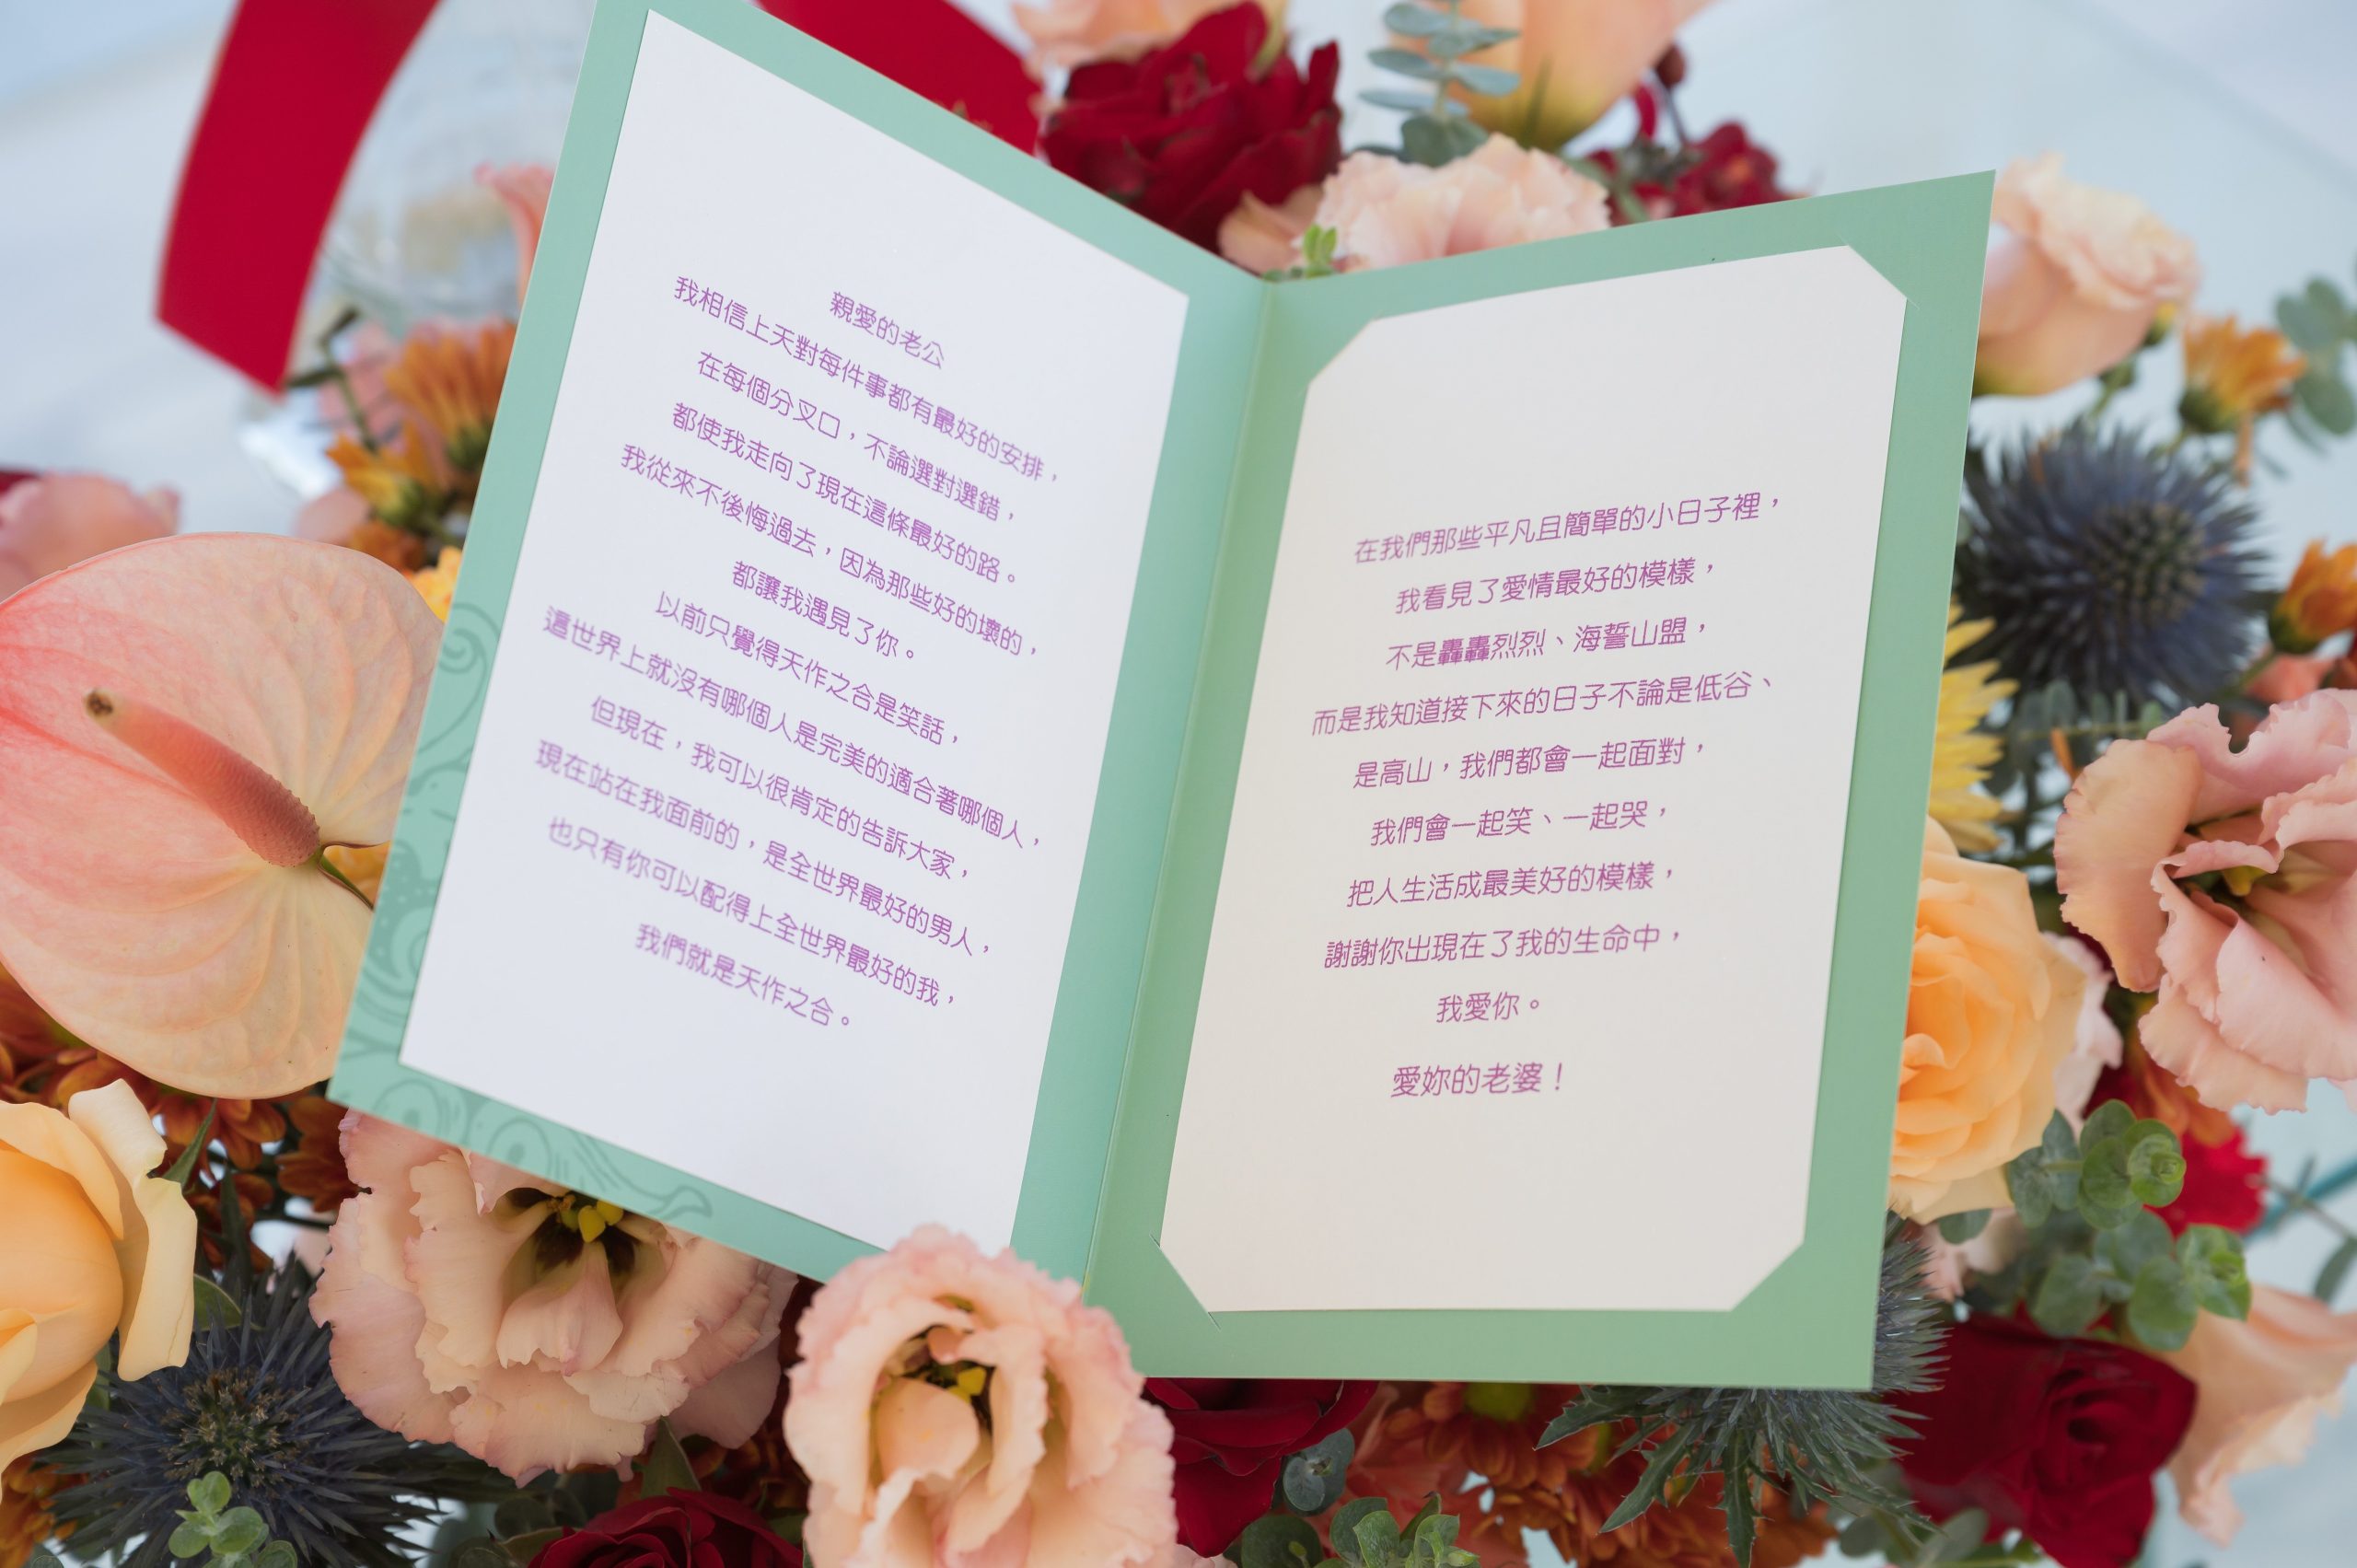 親愛的老公
我相信上天對每件事都有最好的安排，
在每個分叉口，不論選對選錯，
都使我走向了現在這條最好的路。
我從來不後悔過去，因為那些好的壞的，
都讓我遇見了你。
以前只覺得天作之合是笑話，
這世界上就沒有哪個人是完美的適合著哪個人，
但現在，我可以很肯定的告訴大家，
現在站在我面前的，是全世界最好的男人，
也只有你可以配得上全世界最好的我，
我們就是天作之合。
在我們那些平凡且簡單的小日子裡，
我看見了愛情最好的模樣，
不是轟轟烈烈、海誓山盟，
而是我知道接下來的日子不論是低谷、
是高山，我們都會一起面對，
我們會一起笑、一起哭，
把人生活成最美好的模樣，
謝謝你出現在了我的生命中，
我愛你。
愛妳的老婆！